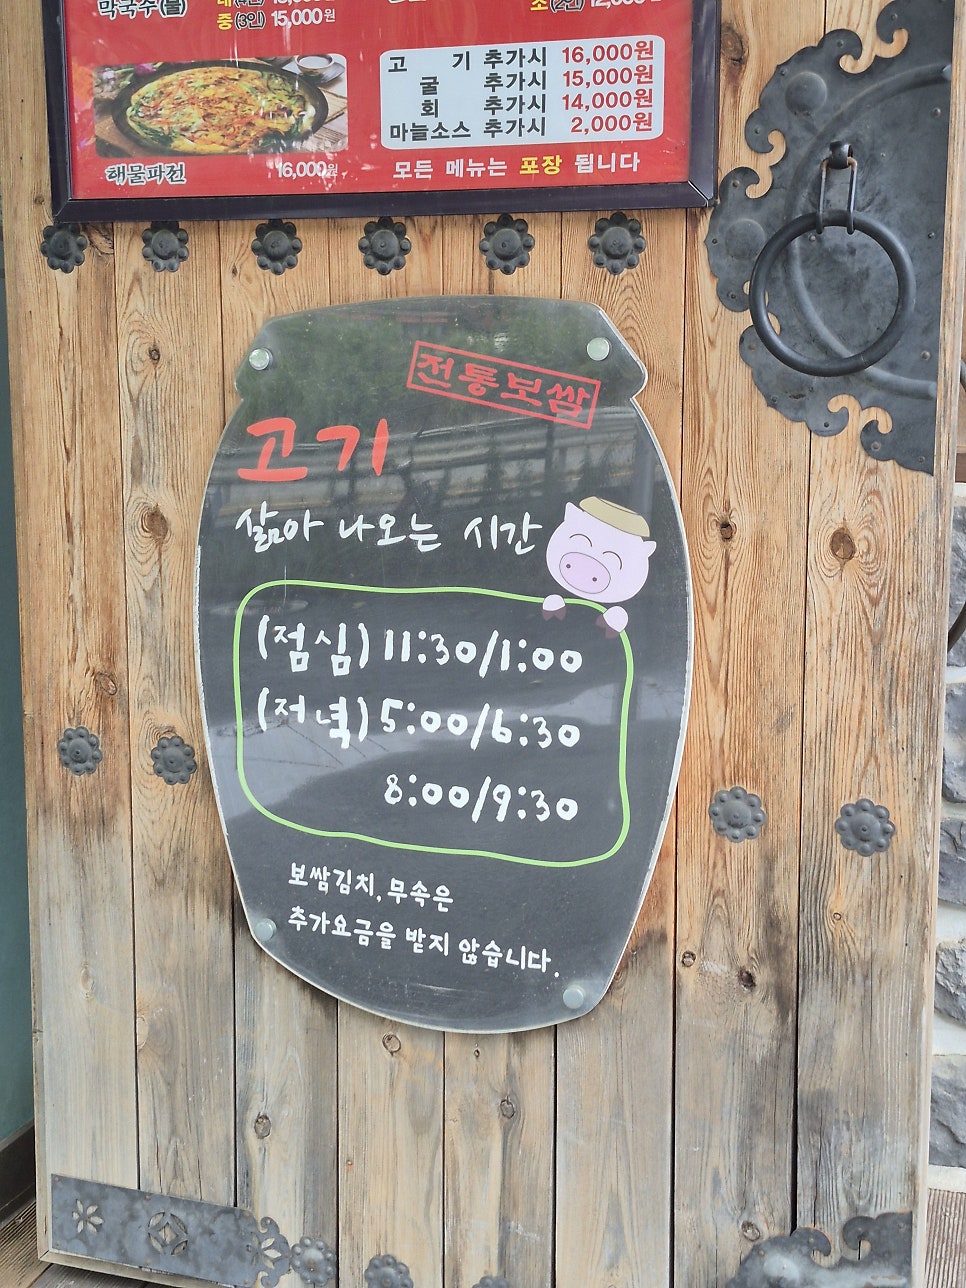 막국수(물)
중(3인) 15,000원
고 기 추가시 16,000원
굴 추가시 15,000원
회 추가시 14,000원
마늘소스 추가시 2,000원
해물파전 16,000원
모든 메뉴는 포장 됩니다
전통보쌈
고기
삶아 나오는 시간
(점심) 11:30/1:00
(저녁) 5:00/6:30
8:00/9:30
보쌈김치, 무속은
추가요금을 받지 않습니다.